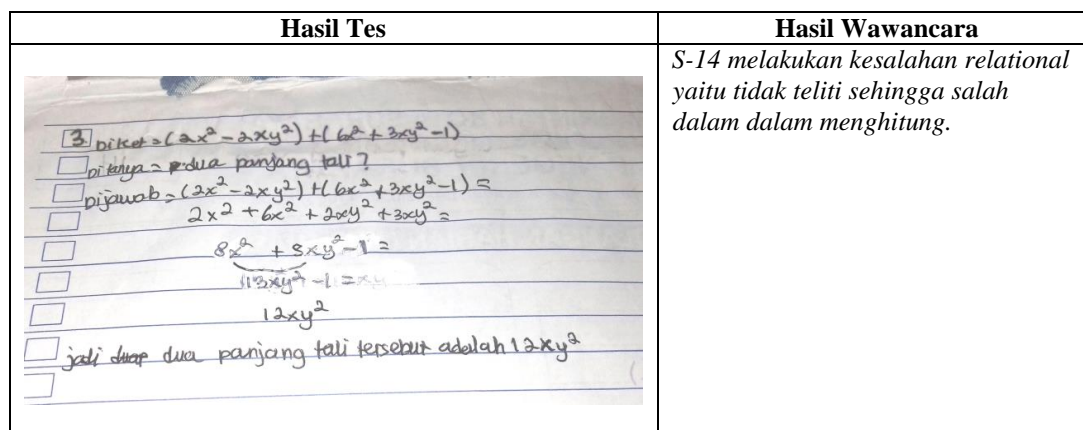 Hasil Tes
Hasil Wawancara
3 Diket = (2x² - 2xy²) + (6x² + 3xy² - 1)
Ditanya = dua panjang tali?
Dijawab = (2x² - 2xy²) + (6x² + 3xy² - 1) =
2x² + 6x² + 2xy² + 3xy² =
8x² + 5xy² - 1 =
13xy² - 1 =
12xy²
jadi dua panjang tali tersebut adalah 12xy²
S-14 melakukan kesalahan relational
yaitu tidak teliti sehingga salah
dalam dalam menghitung.